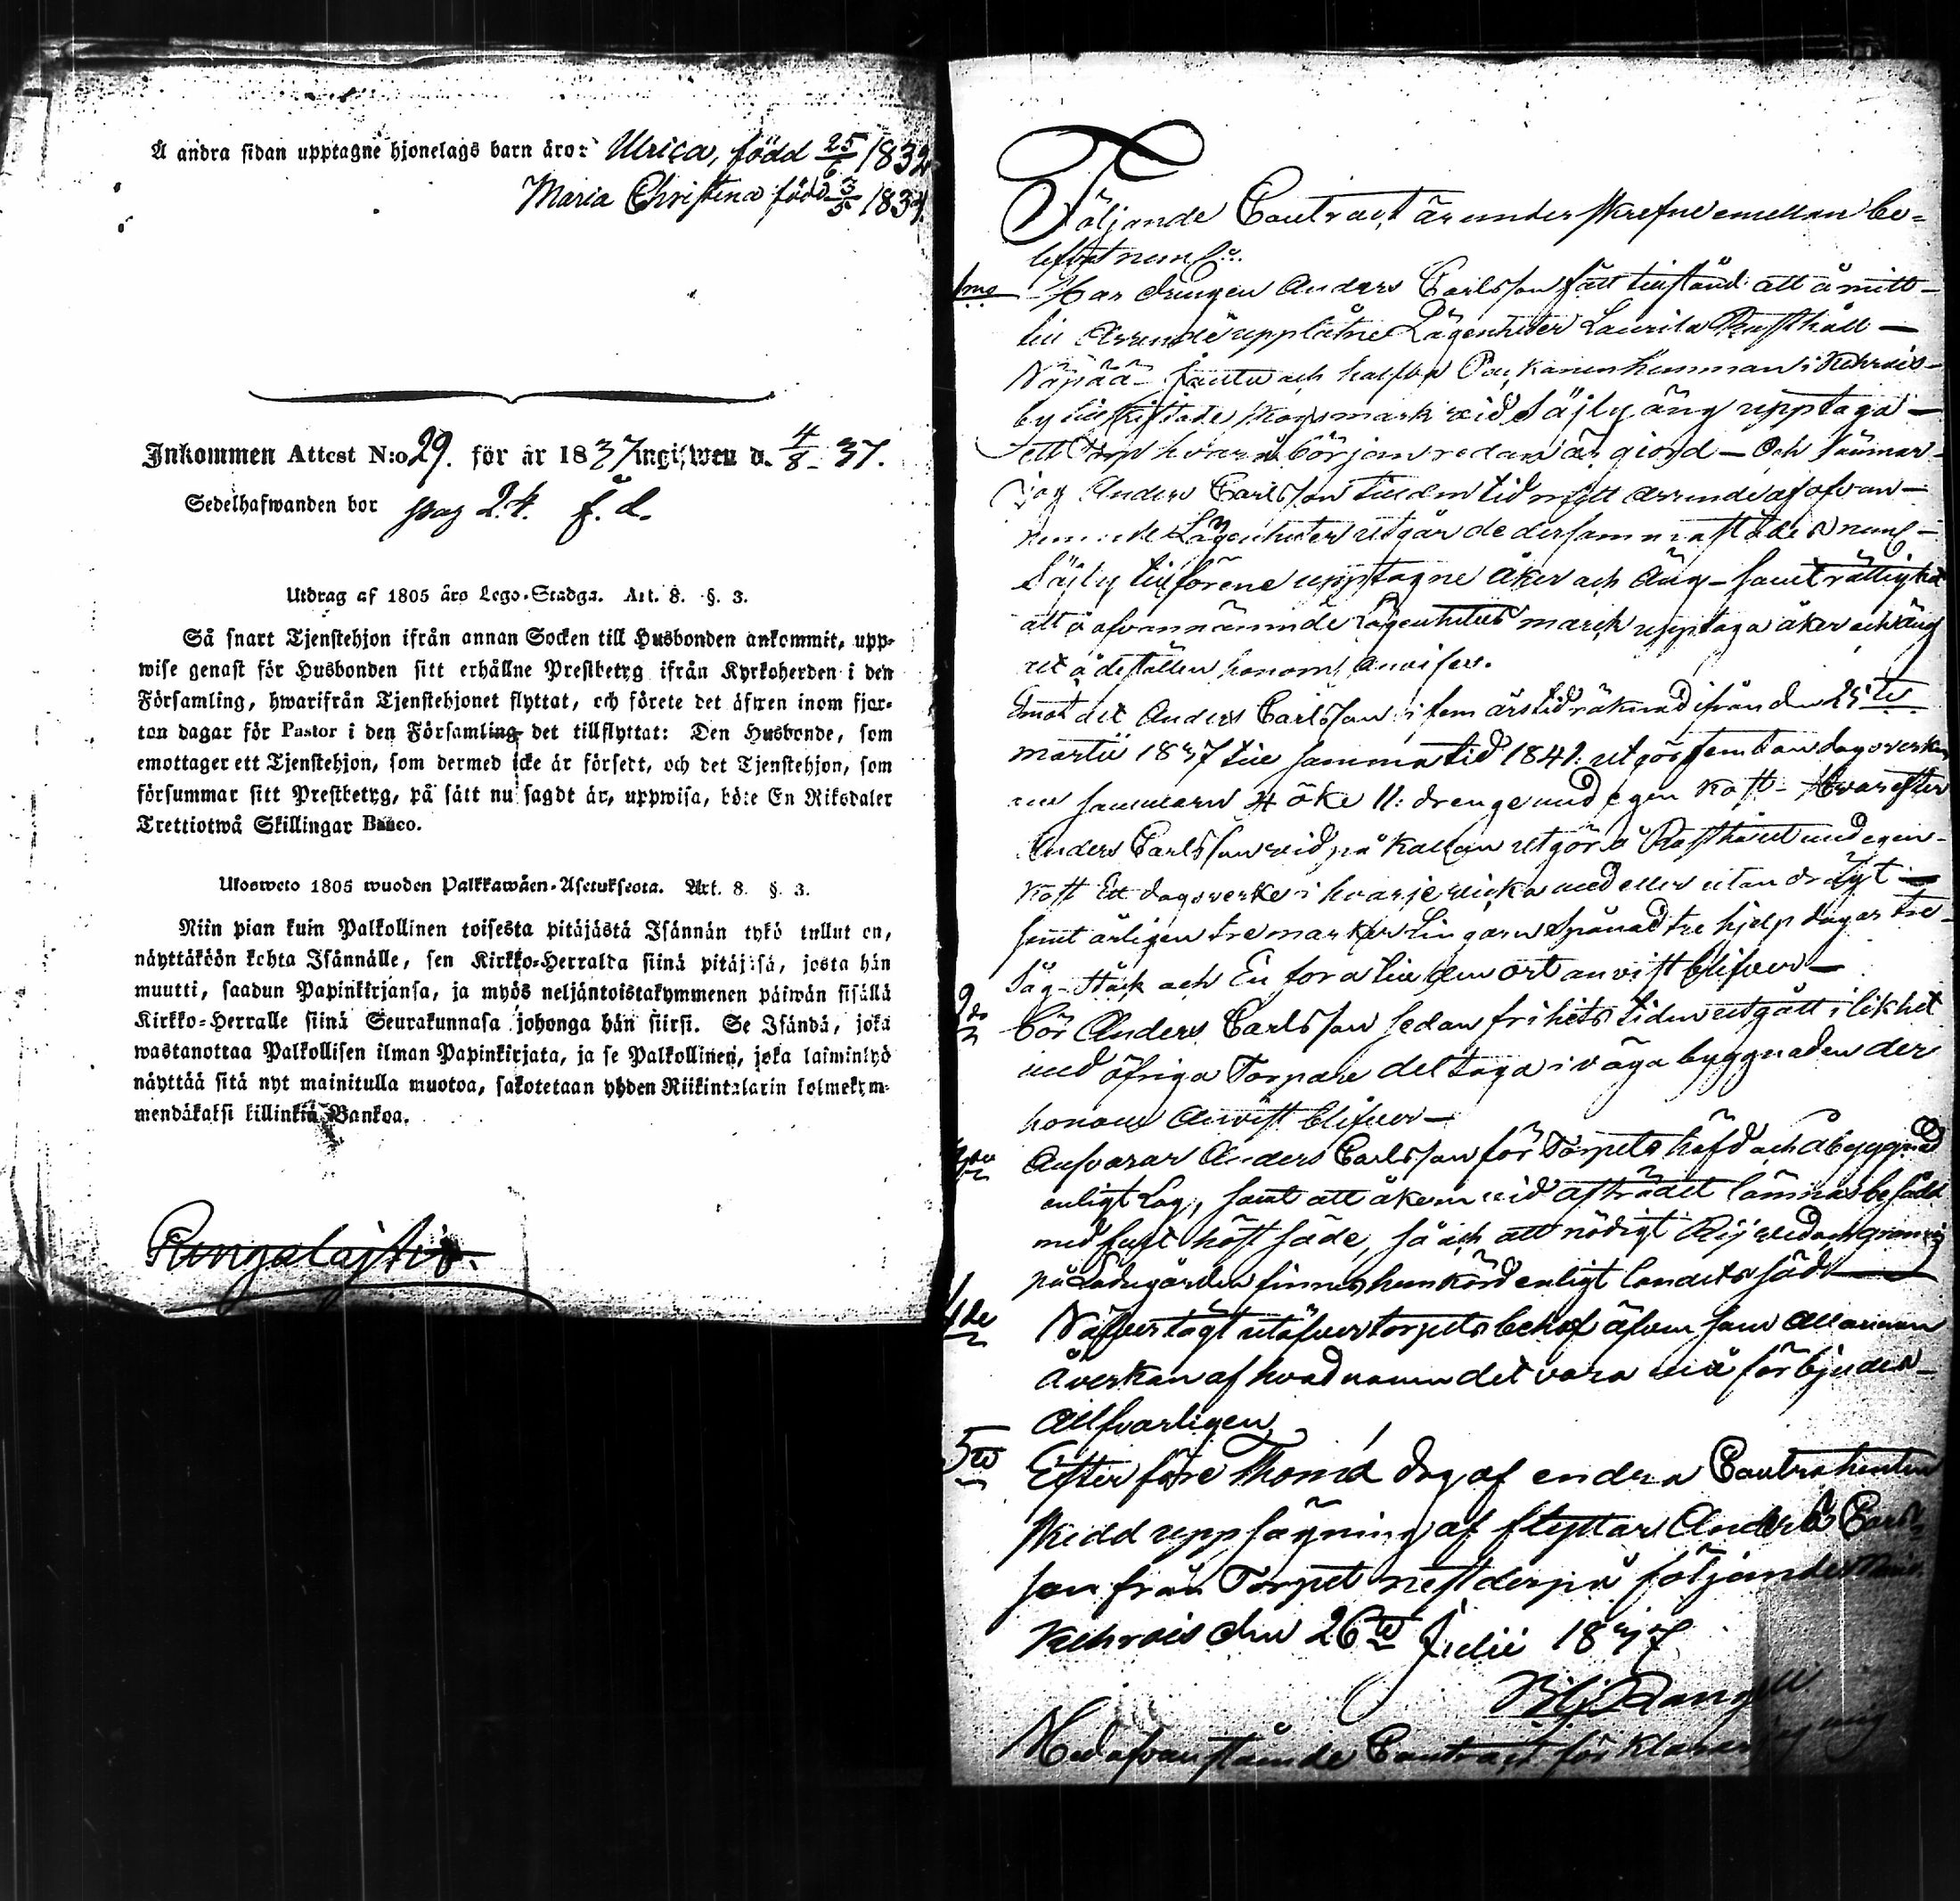 Å andra sidan upptagne hjonelags barn äro: Ulrica, född 25/6 1832
Maria Christina född 3/5 1834.
Inkommen Attest N:o 29. för år 1837 ingifwen d. 4/8 37.
Sedelhafwanden bor pag 24. f. d.
Utdrag af 1805 års Lego-Stadga. Art. 8. §. 3.
Så snart Tjenstehjon ifrån annan Socken till Husbonden ankommit, upp-
wise genast för Husbonden sitt erhållne Prestbetyg ifrån Kyrkoherden i den
Församling, hwarifrån Tjenstehjonet flyttat, och förete det äfwen inom fjor-
ton dagar för Pastor i den Församling det tillflyttat: Den Husbonde, som
emottager ett Tjenstehjon, som dermed icke är försedt, och det Tjenstehjon, som
försummar sitt Prestbetyg, på sätt nu sagdt är, uppwisa, böte En Riksdaler
Trettiotwå Skillingar Banco.
Ulosweto 1805 wuoden Palkkawäen-Asetuksesta. Art. 8. §. 3.
Niin pian kuin Palkollinen toisesta pitäjästä Isännän tykö tullut on,
näyttäköön kohta Isännälle, sen Kirkko-Herralda siinä pitäjäsä, josta hän
muutti, saadun Papinkirjansa, ja myös neljäntoistakymmenen päiwän sisällä
Kirkko-Herralle siinä Seurakunnasa johonga hän siirsi. Se Isändä, joka
wastanottaa Palkollisen ilman Papinkirjata, ja se Palkollinen, joka laiminlyö
näyttää sitä nyt mainitulla muotoa, sakotetaan yhden Riikintalarin kolmekym-
mendäkaksi killinkiä Bankoa.
Följande Contract är underskrefne emellan be-
1mo Har drengen Anders Carlsson fått tillstånd att å mitt
till Arrende upplåtne Lägenheter Laurila Rusthåll
Näpää och halfva hemman i Kehrois
by skogsmark vid Säjly äng upptaga
ett Torp hvarå början redan är giord - Och
jag Anders Carlsson till den tid mitt arrende af ofvan-
Lägenheter utgår de dersammastädes
Säjly tillförene upptagne åker och Äng - samt rättighet
att å ofvannämnde Lägenheters mark upptaga åker och äng
ställen honom anvises.
Emot det Anders Carlsson i fem års tid räknad ifrån den 25te
martii 1837 till samma tid 1841: utgör femton dagsverken
om sommarn 4 öke 11: drenge med egen kost - Hvarefter
Anders Carlsson vid påkallan utgör å Rusthållet med egen
kost Ett dagsverke i hvarje vicka med eller utan dragt
samt årligen tre marker Lingarn Spånad tre hjelp dagar tre
Såg Stock och En fora till den ort anvist blifver
2do bör Anders Carlsson sedan frihets tiden utgått i likhet
med öfriga Torpare deltaga i väga byggnaden der
honom Anvist blifver
3tio Ansvarar Anders Carlsson för Torpets häfd och åbyggnad
enligt Lag, samt att åkern vid afträdet lämnas besådd
med höst säde, så och att nödigt Rij ved
på Ladugården finnes hemkörd enligt landets sed
4de Näfvertägt utöfver torpets behof äfven som all annan
åverkan af hvad namn det vara må förbjudes
Allfvarligen
5te Efter före Thomæ dag af endera Contrahenten
skedd uppsägning af flyttar Anders Carls-
son från Torpet nest derpå följande
Kehrois den 26te Julii 1837
Med ofvanstående Contract förklarar jag mig